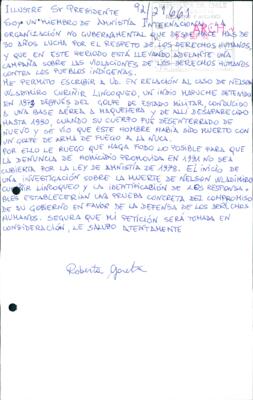 ILLUSTRE SR PRESIDENTE
92/21661
ARCH
SOY UN MIEMBRO DE AMNISTIA INTERNACIONAL,
ORGANIZACIÓN NO GUBERNAMENTAL QUE DESDE HACE MAS DE
30 AÑOS LUCHA POR EL RESPETO DE LOS DERECHOS HUMANOS
Y QUE EN ESTE PERIODO ESTÁ LLEVANDO ADELANTE UNA
CAMPAÑA SOBRE LAS VIOLACIONES DE LOS DERECHOS HUMANOS
CONTRA LOS PUEBLOS INDÍGENAS.
ME PERMITO ESCRIBIR A UD. EN RELACIÓN AL CASO DE NELSON
VLADIMIRO CURIÑIR LINCOQUEO, UN INDIO MAPUCHE DETENIDO
EN 1973 DESPUÉS DEL GOLPE DE ESTADO MILITAR, CONDUCIDO
A UNA BASE AÉREA A MAQUEHERA Y DE ALLÍ DESAPARECIDO
HASTA 1990, CUANDO SU CUERPO FUÉ DESENTERRADO DE
NUEVO Y SE VIO QUE ESTE HOMBRE HABÍA SIDO MUERTO CON
UN GOLPE DE ARMA DE FUEGO A LA NUCA
POR ELLO LE RUEGO QUE HAGA TODO LO POSIBLE PARA QUE
LA DENUNCIA DE HOMICIDIO PROMOVIDA EN 1991 NO SEA
CUBIERTA POR LA LEY DE AMNISTÍA DE 1978. EL INICIO DE
UNA INVESTIGACIÓN SOBRE LA MUERTE DE NELSON WLADIMIRO
CURIÑIR LINCOQUEO Y LA IDENTIFICACIÓN DE LOS RESPONSA-
BLES ESTABLECERIAN UNA PRUEBA CONCRETA DEL COMPROMISO
DE SU GOBIERNO EN FAVOR DE LA DEFENSA DE LOS DERECHOS
HUMANOS. SEGURA QUE MI PETICIÓN SERÁ TOMADA EN
CONSIDERACIÓN, LE SALUDO ATENTAMENTE
Roberta